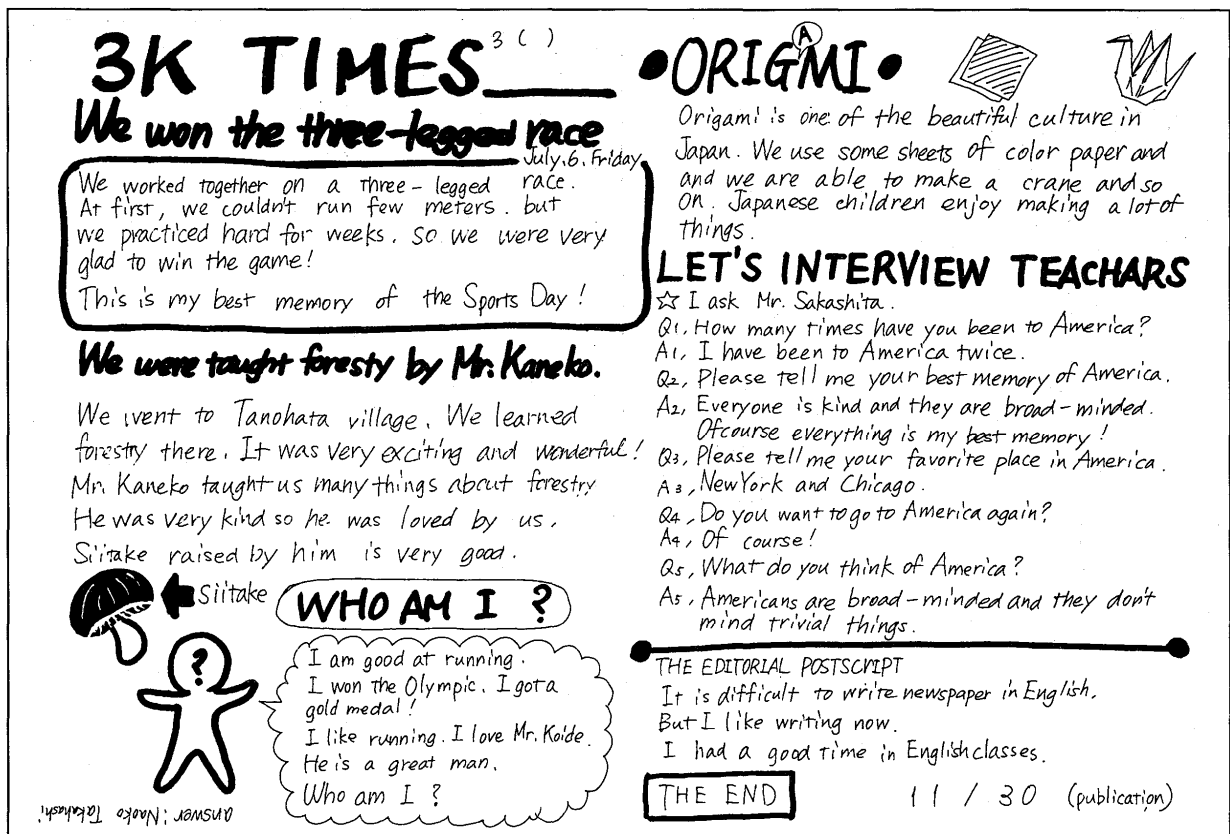 3K TIMES
3 ( )
We won the three-legged race
July.6.Friday
We worked together on a three-legged race.
At first, we couldn't run few meters. but
we practiced hard for weeks. So we were very
glad to win the game!
This is my best memory of the Sports Day!
We were taught foresty by Mr. Kaneko.
We went to Tanohata village. We learned
forestry there. It was very exciting and wonderful!
Mr. Kaneko taught us many things about forestry
He was very kind so he was loved by us.
Siitake raised by him is very good.
Siitake
WHO AM I ?
?
I am good at running.
I won the Olympic. I got a
gold medal!
I like running. I love Mr. Koide.
He is a great man.
Who am I ?
answer: Naoko Takahashi
•ORIGAMI•
Origami is one of the beautiful culture in
Japan. We use some sheets of color paper and
and we are able to make a crane and so
on. Japanese children enjoy making a lot of
things.
LET'S INTERVIEW TEACHARS
☆ I ask Mr. Sakashita.
Q1, How many times have you been to America?
A1, I have been to America twice.
Q2, Please tell me your best memory of America.
A2, Everyone is kind and they are broad-minded.
Ofcourse everything is my best memory!
Q3, Please tell me your favorite place in America.
A3, NewYork and Chicago.
Q4, Do you want to go to America again?
A4, Of course!
Q5, What do you think of America?
A5, Americans are broad-minded and they don't
mind trivial things.
THE EDITORIAL POSTSCRIPT
It is difficult to write newspaper in English.
But I like writing now.
I had a good time in English classes.
THE END
11 / 30 (publication)